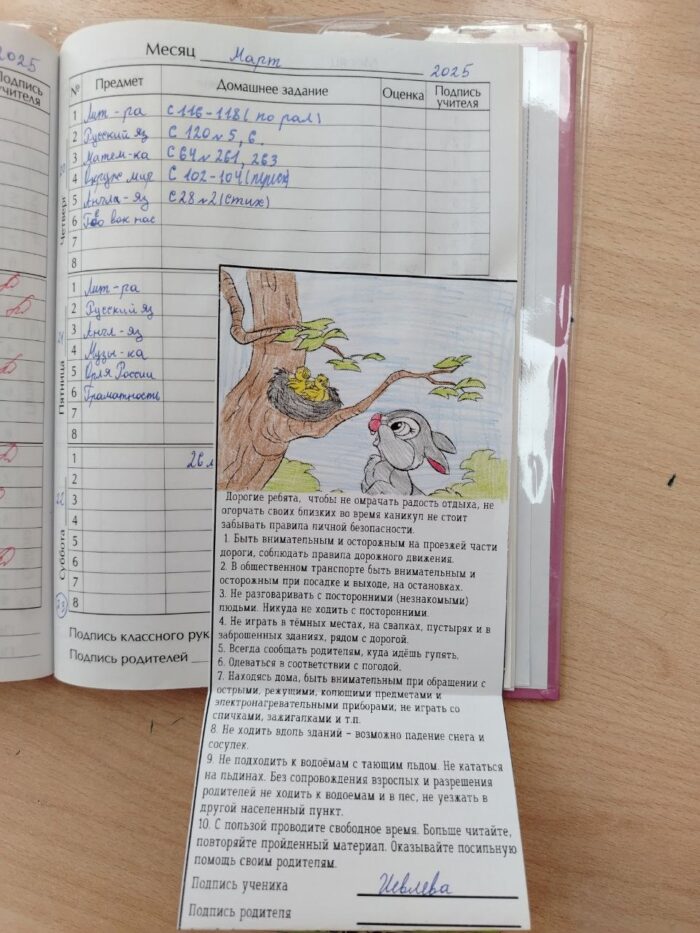 2025
Подпись
учителя
Месяц Март 2025
№ Предмет Домашнее задание Оценка Подпись учителя
Четверг
1 Лит-ра С 116-118 (по рал)
2 Русский яз С 120 № 5, 6.
3 Матем-ка С 64 № 261, 263
4 Окруж мир С 102-104
5 Англа-яз С 28 № 2 (стих)
6 вок нас
7
8
Пятница 21
1 Лит-ра
2 Русский яз
3 Англ-яз
4 Музы-ка
5 Орля России
6 Граматность
7
8
Суббота 22
1
2
3
4
5
6
7
8
Подпись классного рук
Подпись родителей
Дорогие ребята, чтобы не омрачать радость отдыха, не
огорчать своих близких во время каникул не стоит
забывать правила личной безопасности.
1. Быть внимательным и осторожным на проезжей части
дороги, соблюдать правила дорожного движения.
2. В общественном транспорте быть внимательным и
осторожным при посадке и выходе, на остановках.
3. Не разговаривать с посторонними (незнакомыми)
людьми. Никуда не ходить с посторонними.
4. Не играть в тёмных местах, на свалках, пустырях и в
заброшенных зданиях, рядом с дорогой.
5. Всегда сообщать родителям, куда идёшь гулять.
6. Одеваться в соответствии с погодой.
7. Находясь дома, быть внимательным при обращении с
острыми, режущими, колющими предметами и
электронагревательными приборами; не играть со
спичками, зажигалками и т.п.
8. Не ходить вдоль зданий – возможно падение снега и
сосулек.
9. Не подходить к водоёмам с тающим льдом. Не кататься
на льдинах. Без сопровождения взрослых и разрешения
родителей не ходить к водоемам и в лес, не уезжать в
другой населенный пункт.
10. С пользой проводите свободное время. Больше читайте,
повторяйте пройденный материал. Оказывайте посильную
помощь своим родителям.
Подпись ученика Иевлева
Подпись родителя